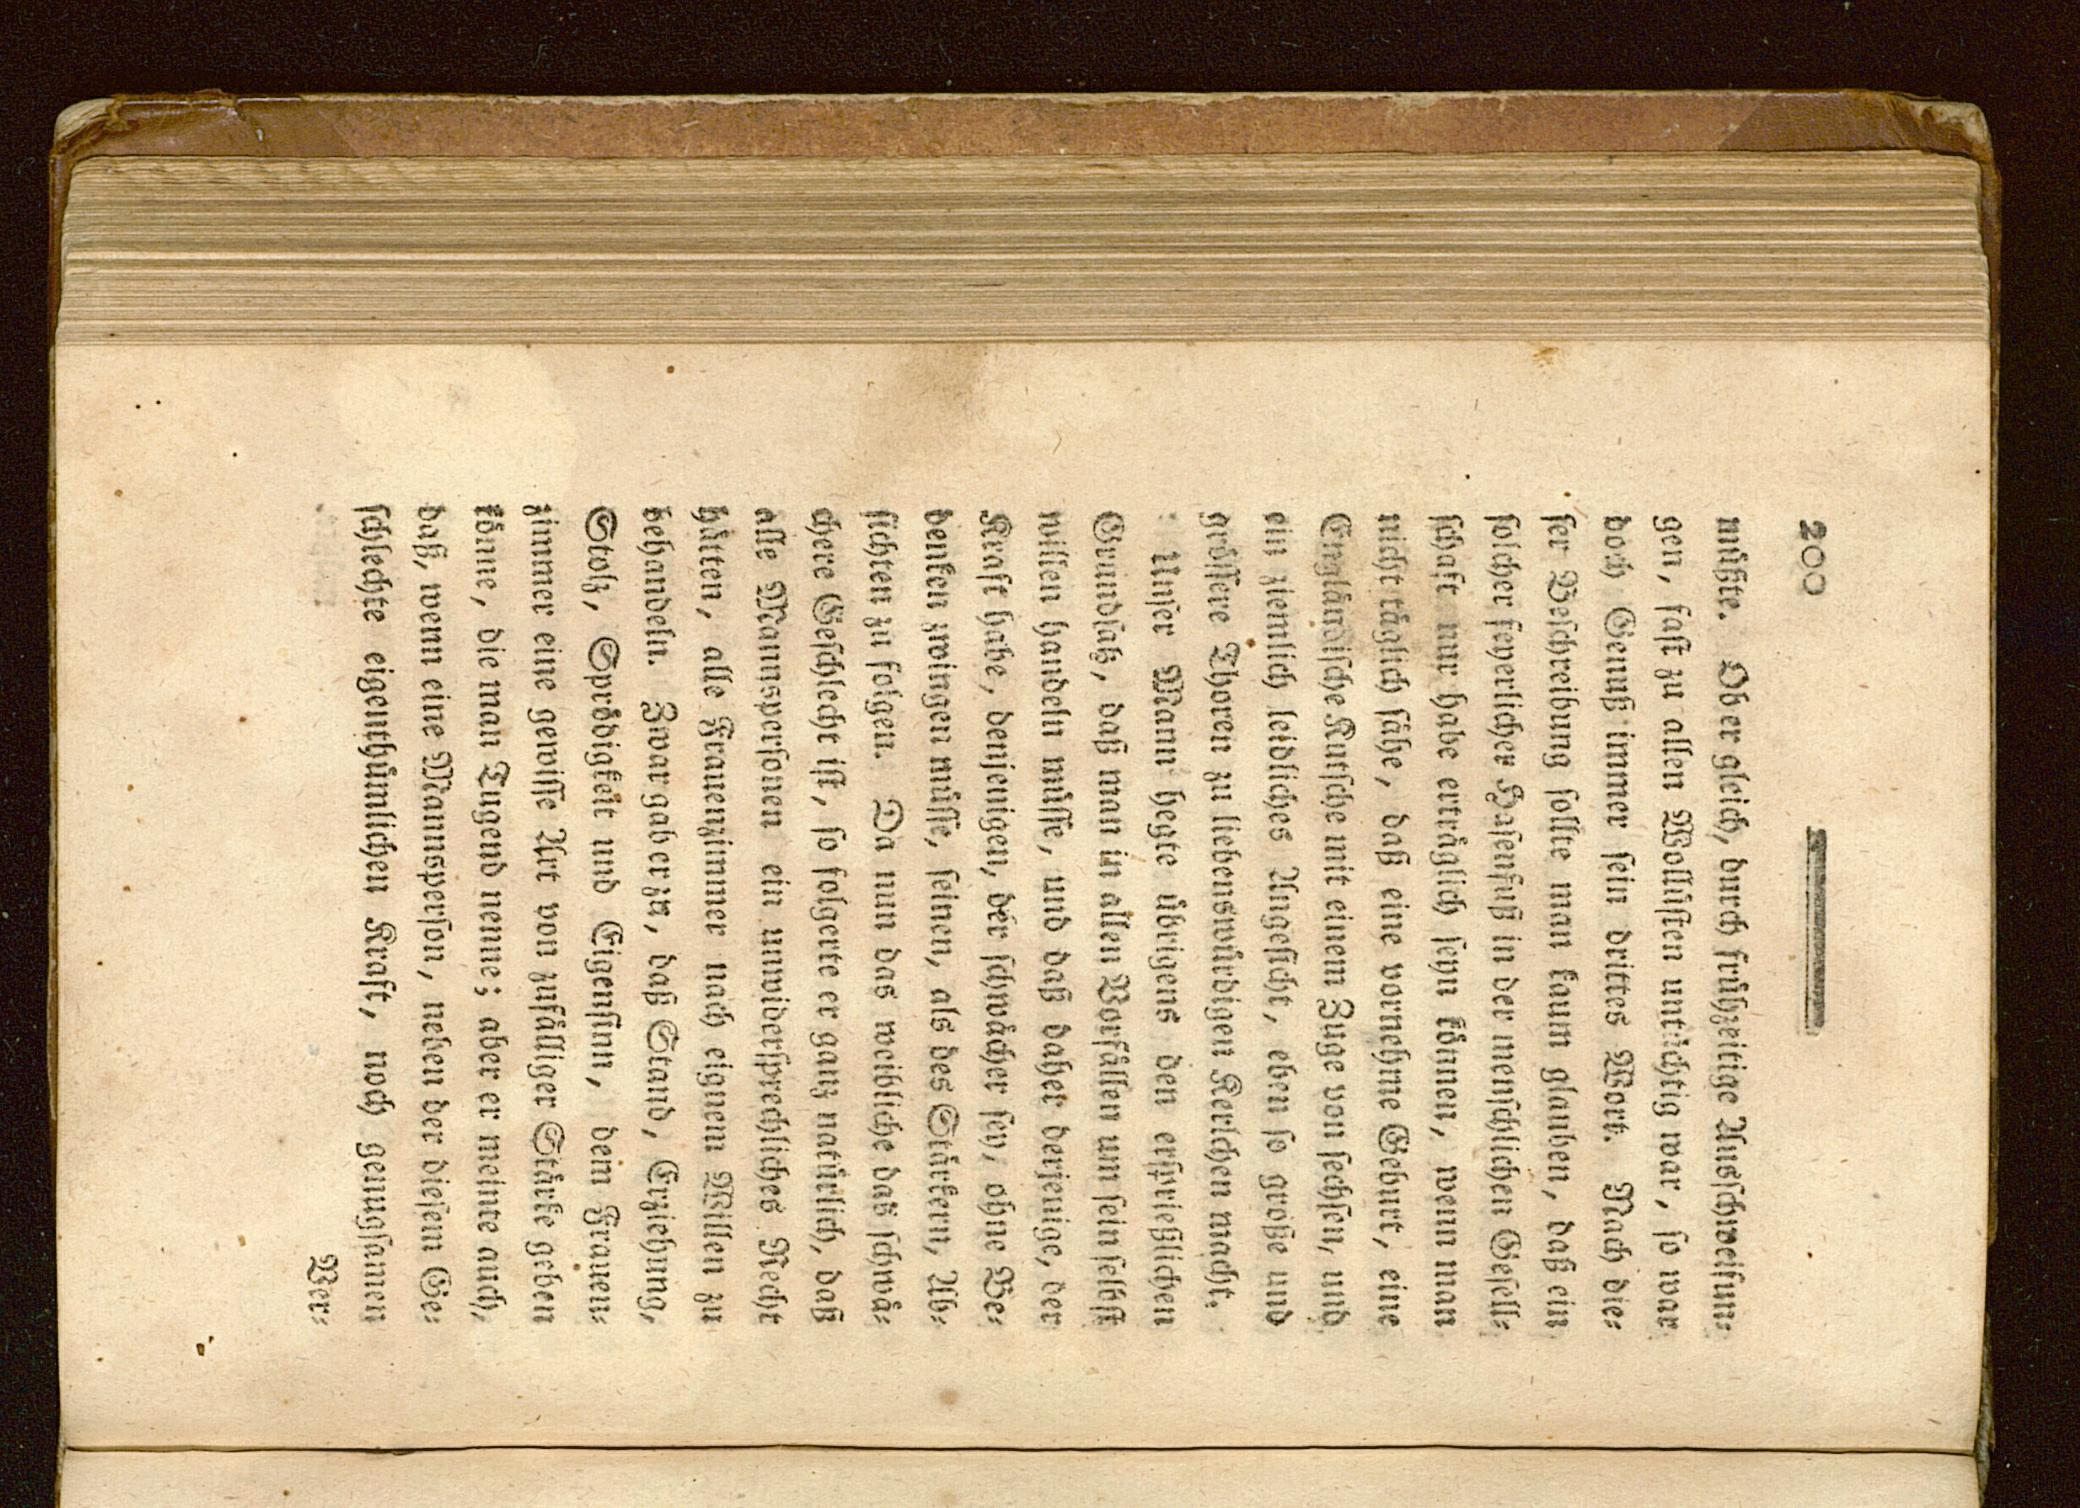 200
müßte. Ober gleich, durch frühzeitige Ausschweifun-
gen, fast zu allen Wollüsten untüchtig war, so war
doch Genuß immer sein drittes Wort. Nach die-
ser Beschreibung sollte man kaum glauben, daß ein
solcher feyerlicher Hasenfuß in der menschlichen Gesell-
schaft nur habe erträglich seyn können, wenn man
nicht täglich sähe, daß eine vornehme Geburt, eine
Engländische Kutsche mit einem Zuge von sechsen, und
ein ziemlich leidliches Angesicht, eben so große und
größere Thoren zu liebenswürdigen Kerlchen macht.
Unser Mann hegte übrigens den ersprießlichen
Grundsatz, daß man in allen Vorfällen um sein selbst
willen handeln müsse, und daß daher derjenige, der
Kraft habe, denjenigen, der schwächer sey, ohne Be-
denken zwingen müsse, seinen, als des Stärkern, Ab-
sichten zu folgen. Da nun das weibliche das schwä-
chere Geschlecht ist, so folgerte er ganz natürlich, daß
alle Mannspersonen ein unwidersprechliches Recht
hätten, alle Frauenzimmer nach eignem Willen zu
behandeln. Zwar gab er zu, daß Stand, Erziehung,
Stolz, Sprödigkeit und Eigensinn, dem Frauen-
zimmer eine gewisse Art von zufälliger Stärke geben
könne, die man Tugend nenne; aber er meinte auch,
daß, wenn eine Mannsperson, neben der diesem Ge-
schlechte eigenthümlichen Kraft, noch genugsamen
Ver-